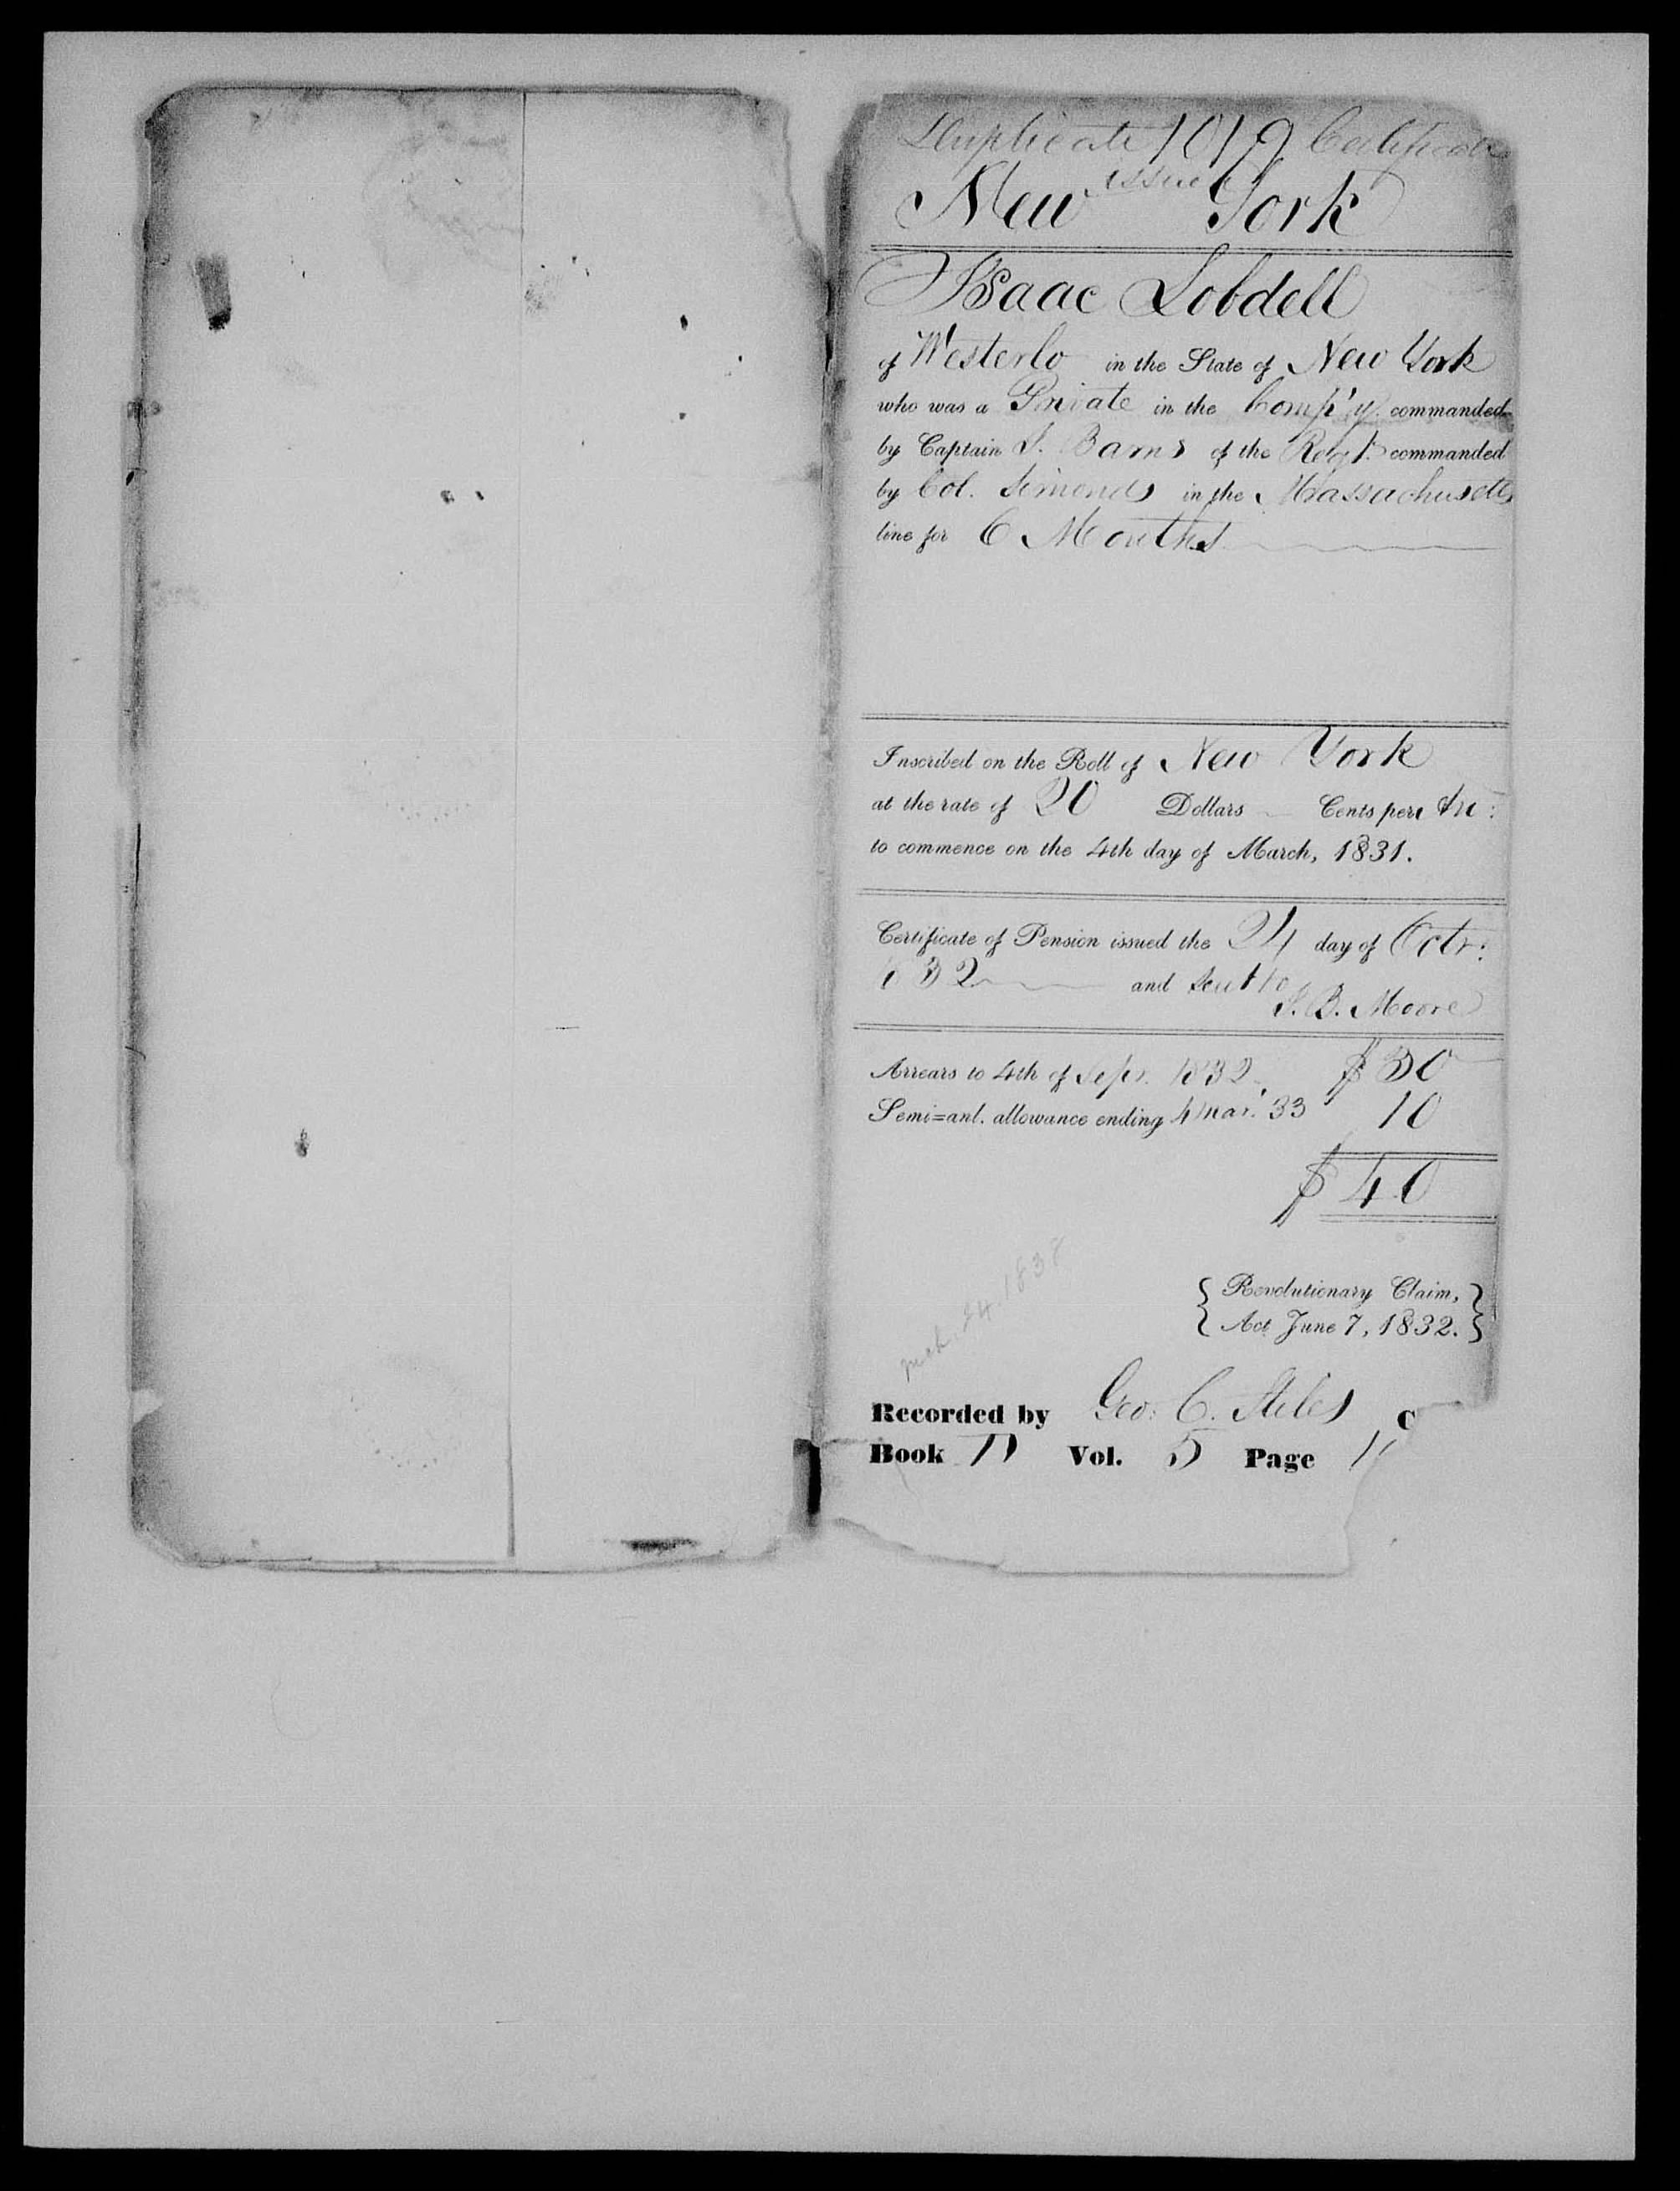 Duplicate 1019 Certificate
issued
New York
Isaac Lobdell
of Westerlo in the State of New York
who was a Private in the Comp'y commanded
by Captain S. Barns of the Regt. commanded
by Col. Simonds in the Massachusetts
line for 6 Months
Inscribed on the Roll of New York
at the rate of 20 Dollars — Cents per An:
to commence on the 4th day of March, 1831.
Certificate of Pension issued the 24 day of Octr:
1832 and sent to
S. B. Moore
Arrears to 4th of Sepr. 1832 $30
Semi=anl. allowance ending 4 Mar. '33 10
$40
{ Revolutionary Claim, }
{ Act June 7, 1832. }
mch. 24. 1838
Recorded by Geo. C. Stiles C
Book D Vol. 5 Page